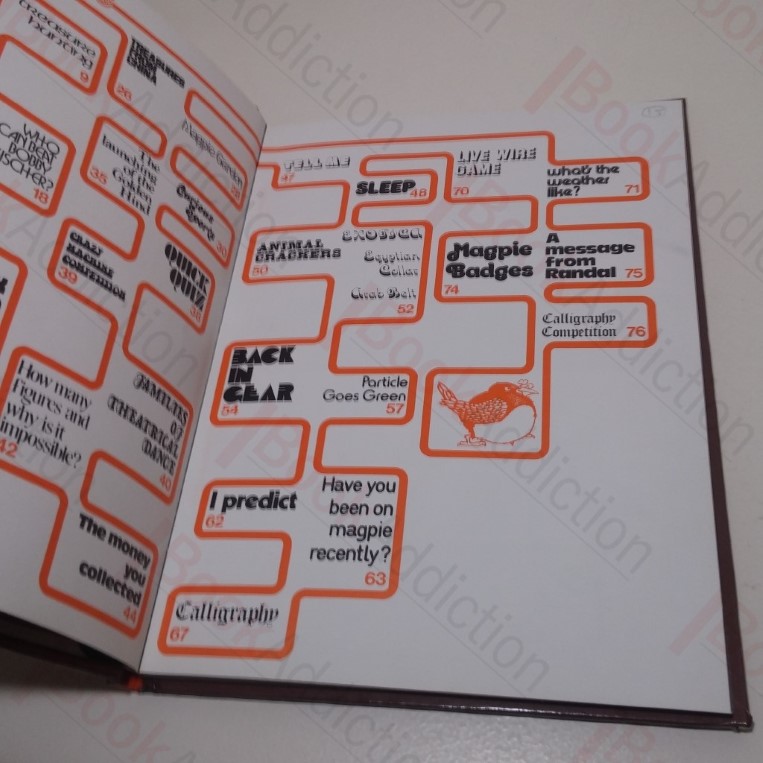 9
TREASURES
FROM
CHINA
26
Magpie Garden
WHO
CAN BEAT
BOBBY
FISCHER?
18
The
launching
of the
Golden
Hind
35
Curious
Sports
30
CRAZY
MACHINE
COMPETITION
39
QUICK
QUIZ
38
How many
figures and
why is it
impossible?
42
FAMILIES
OF
THEATRICAL
DANCE
40
The money
you
collected
44
TELL ME
47
SLEEP 48
LIVE WIRE
GAME
70
what's the
weather
like? 71
ANIMAL
CRACKERS
50
Egyptian
Collar
Arab Belt
52
Magpie
Badges
74
A
message
from
Randal 75
Calligraphy
Competition 76
BACK
IN
GEAR
54
Particle
Goes Green
57
I predict
62
Have you
been on
magpie
recently?
63
Calligraphy
67
BookAddiction